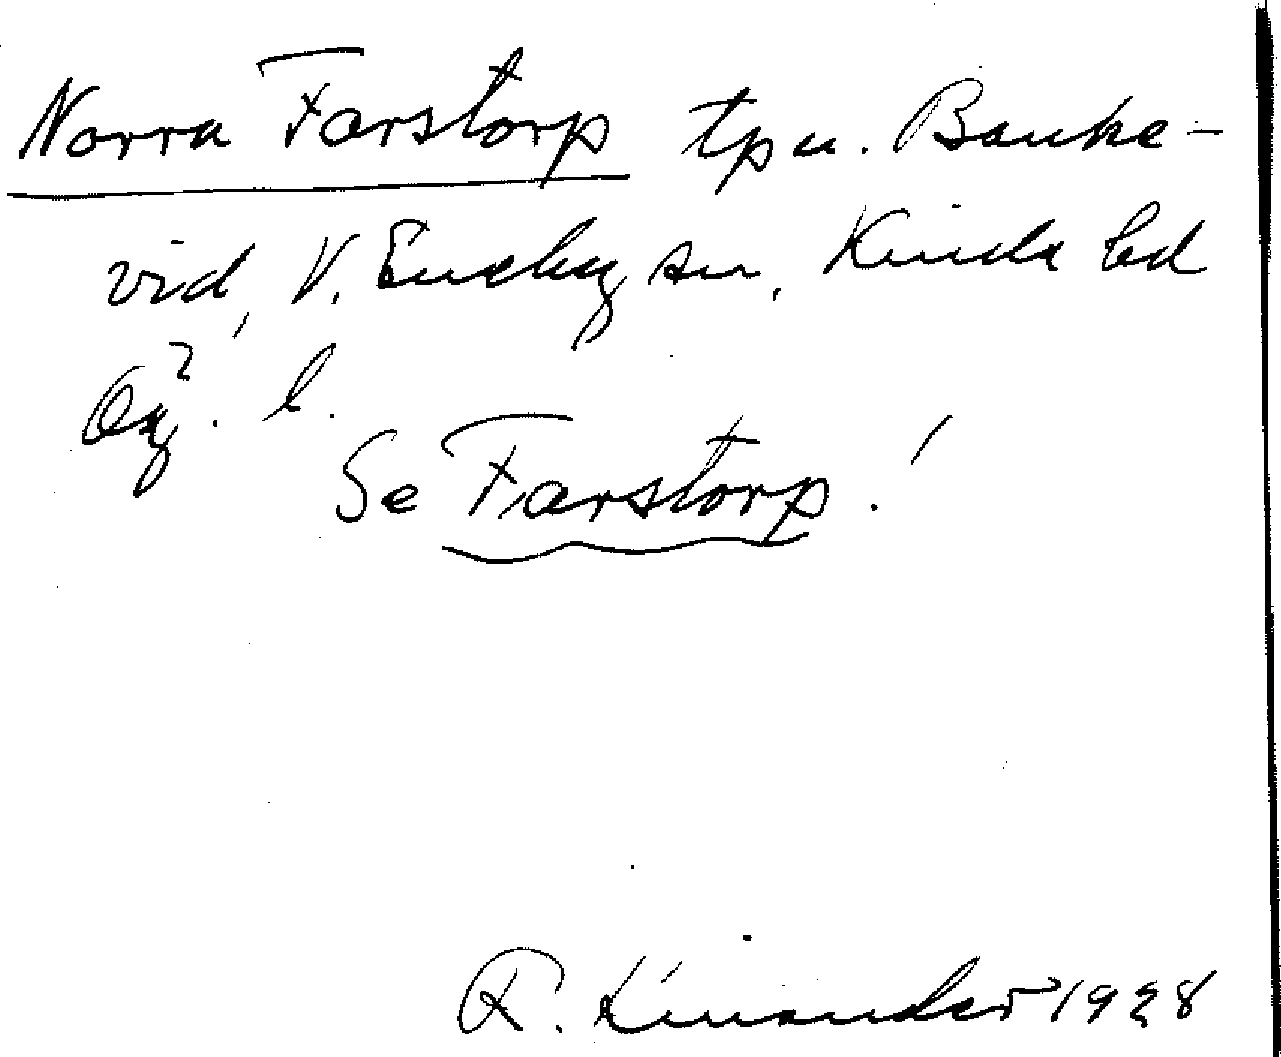 Norra Farstorp tp u. Bouke-
vid, V. Eneby sn, Kinda hd
Ög. l.
Se Farstorp!
R. Kinander 1928